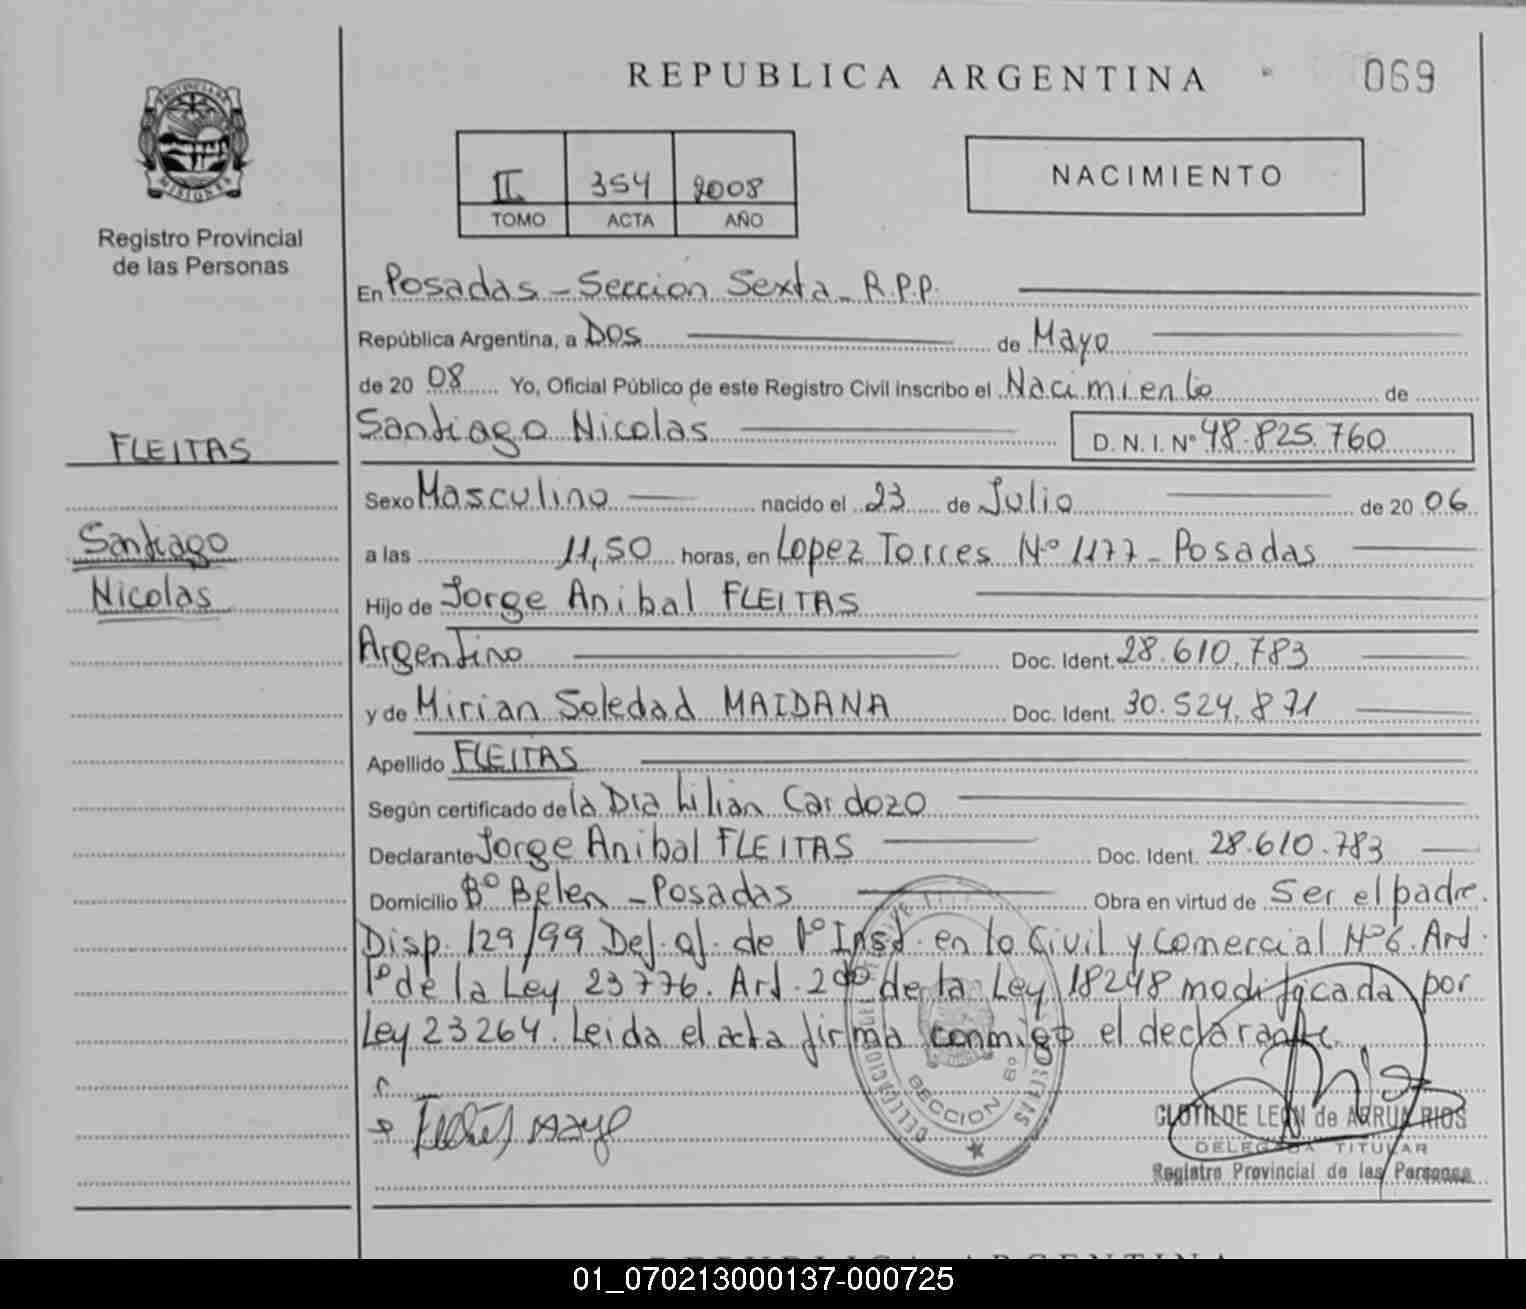 REPUBLICA ARGENTINA
069
PROVINCIA DE
MISIONES
Registro Provincial
de las Personas
II 354 2008
TOMO ACTA AÑO
NACIMIENTO
En Posadas - Sección Sexta - R.P.P.
República Argentina, a Dos de Mayo
de 20 08 Yo, Oficial Público de este Registro Civil inscribo el Nacimiento de
Santiago Nicolas D. N. I. Nº 48.825.760
FLEITAS
Santiago
Nicolas
Sexo Masculino nacido el 23 de Julio de 20 06
a las 11,50 horas, en Lopez Torres Nº 1177 - Posadas
Hijo de Jorge Anibal FLEITAS
Argentino Doc. Ident. 28.610.783
y de Mirian Soledad MAIDANA Doc. Ident. 30.524.871
Apellido FLEITAS
Según certificado de la Dra Lilian Cardozo
Declarante Jorge Anibal FLEITAS Doc. Ident. 28.610.783
Domicilio Bº Belen - Posadas Obra en virtud de Ser el padre.
Disp. 129/99 Def. of. de 1º Inst. en lo Civil y Comercial Nº 6. Art.
1º de la Ley 23776. Art. 2do de la Ley 18248 modificada por
Ley 23264. Leida el acta firma conmigo el declarante.
SECCION 6º
CLOTILDE LEON de ARRUA RIOS
DELEGADA TITULAR
Registro Provincial de las Personas
REPUBLICA ARGENTINA
01_070213000137-000725